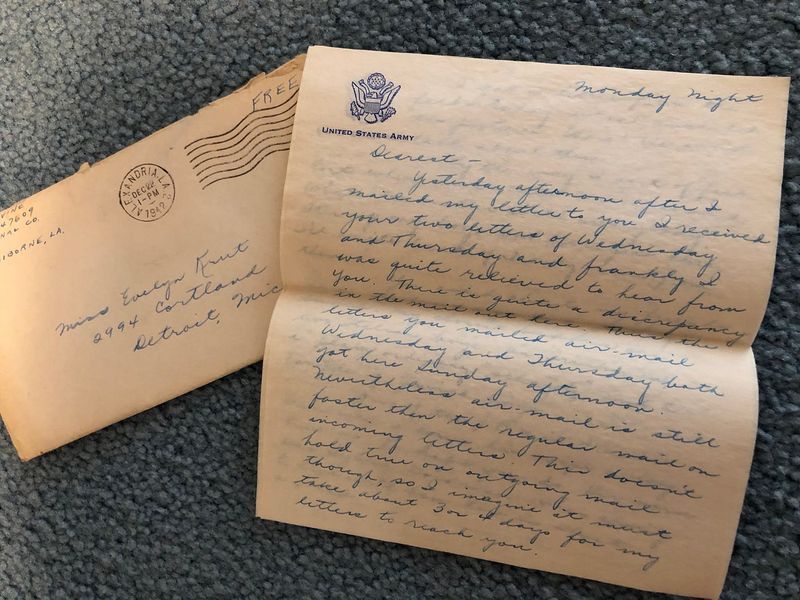 FREE
ALEXANDRIA, LA.
DEC 22
1-PM
1942
47609
CO.
LA.
Miss Evelyn Knut
2994 Cortland
Detroit, Mic
Monday Night
UNITED STATES ARMY
Dearest –
Yesterday afternoon after I
mailed my letter to you I received
your two letters of Wednesday
and Thursday and frankly I
was quite relieved to hear from
you. There is quite a discrepancy
in the mail out here. Thus the
letters you mailed air-mail
Wednesday and Thursday both
got here Sunday afternoon.
Nevertheless air-mail is still
faster then the regular mail on
incoming letters. This doesn't
hold true on outgoing mail
though, so I imagine it must
take about 3 or 4 days for my
letters to reach you.